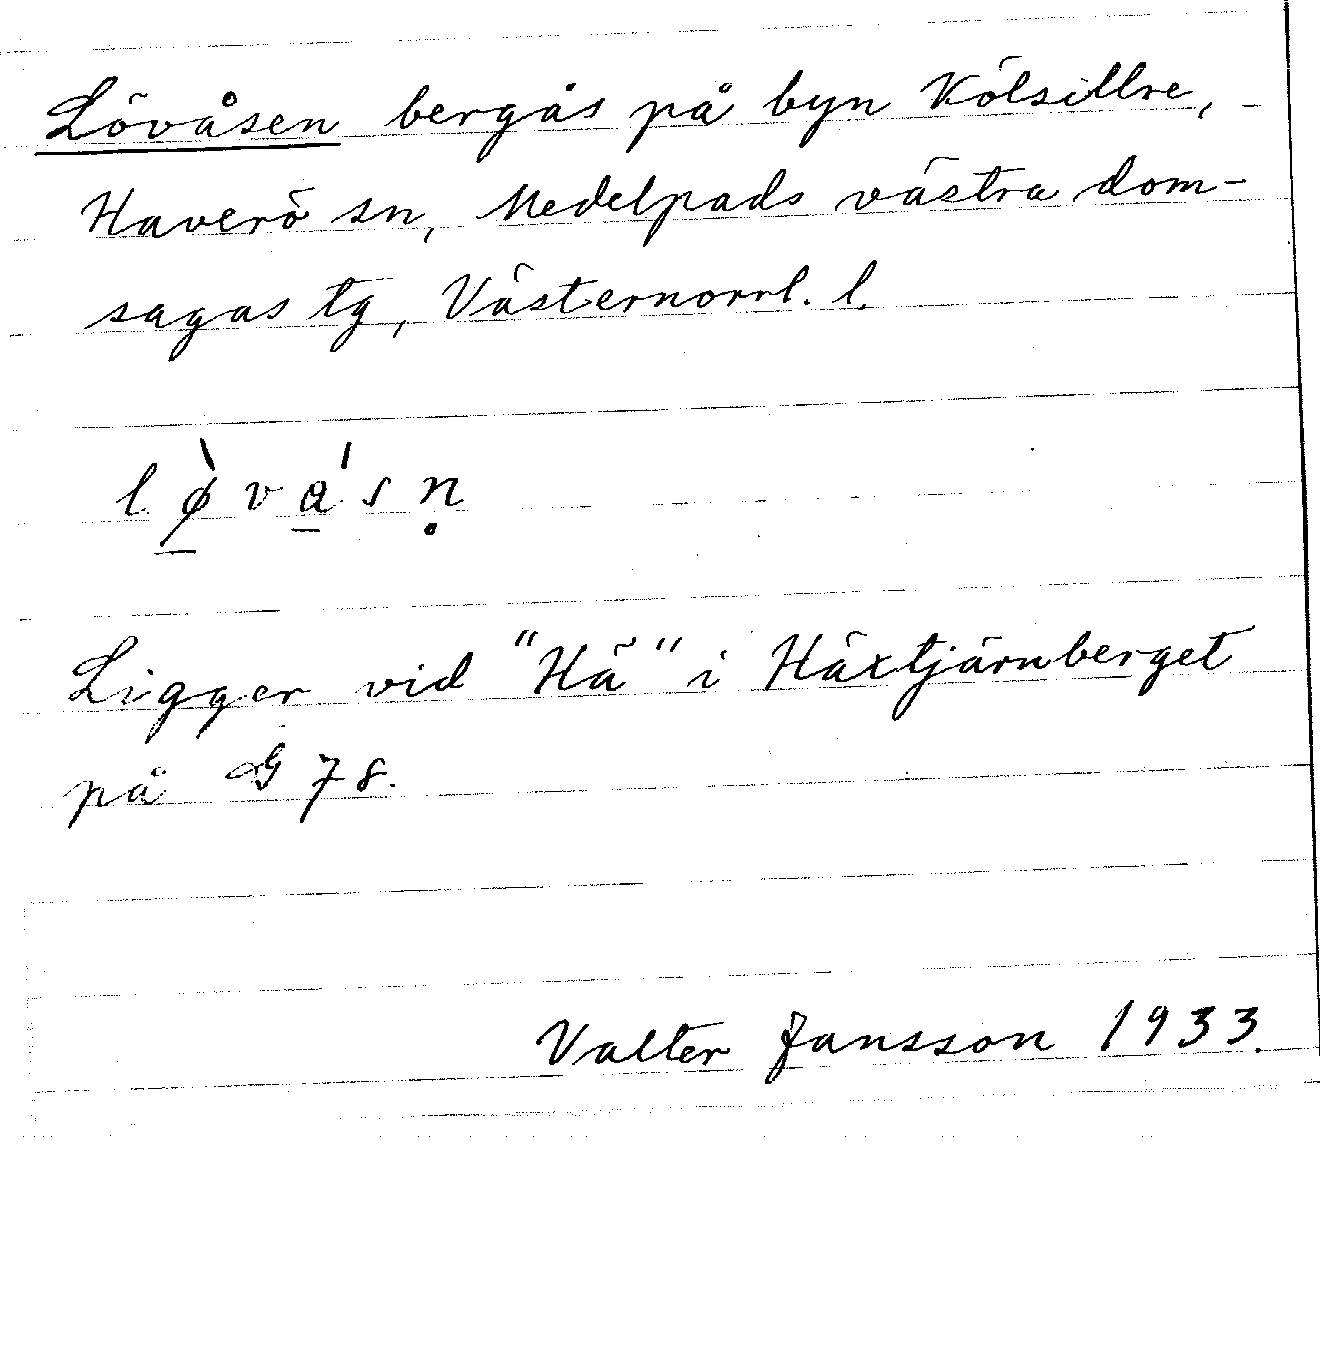 Lövåsen bergås på byn Kölsillre,
Haverö sn, Medelpads västra dom-
sagas tg, Västernorrl. l.
l ø̠̀ v á̠ s ṇ
Ligger vid "Hä" i Häxtjärnberget
på G 78.
Valter Jansson 1933.